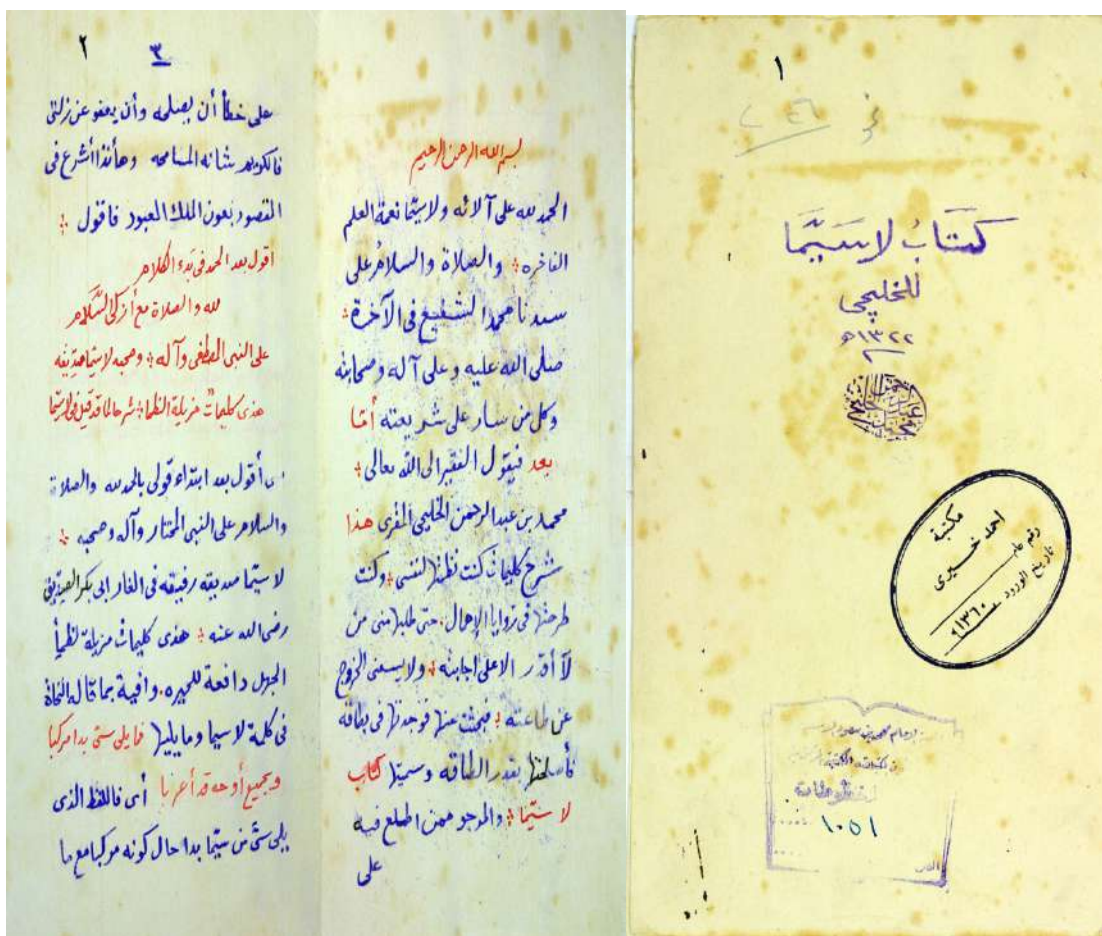 ١
كتَابُ لاسَيَّمَا
للخليجى
١٣٢٢ه
مكتبة
احمد خيرى
رقم
تاريخ الورود ١٣٦٠
المخطوطات
١٠٥١
بسم الله الرحمن الرحيم
الحمد لله على آلائه ولاسيّما نعمة العلم
الفاخره والصلاة والسلامُ على
سيدنا محمد الشفيع فى الآخرة
صلى الله عليه وعلى آله وصحابته
وكل من سار على شريعته أمّا
بعد فيقول الفقير الى الله تعالى
محمد بن عبد الرحمن الخليجى المقرى هذا
شرح كليمات كنت نظمتها لنفسى وكنت
طرحتها فى زوايا الإهمال حتى طلبها منى من
لا أقدر الا على اجابته ولا يسعنى الخروج
عن طاعته فبحثت عنها فوجدتها فى بطاقه
فأصلحتها بقدر الطاقه وسميتها كتاب
لا سيّما والمرجو ممن اطلع فيه
على
٢
٣
على خطأ أن يصلحه وأن يعفو عن زلتى
فالكريم شانه المسامحه وهأنذا أشرع فى
المقصود بعون الملك المعبود فاقول
اقول بعد الحمد فى بَدء الكلام
لله والصلاة مع أزكى السَّلام
على النبى المصطفى وآله وصحبه لاسيّما صدّيقه
هذى كليماتٌ مزيلة الظما شرحا لما قد قيل فى لاسيّما
أقول بعد ابتداء قولى بالحمد لله والصلاة
والسلام على النبى المختار وآله وصحبه
لاسيما صديقه رفيقه فى الغار ابى بكر الصديق
رضى الله عنه هذى كليماتٌ مزيلة لظمأ
الجهل دافعة للحيره وافية بما قاله النحاة
فى كلمة لاسيما ومايليها فما يلى سىّ بدا مركبا
وبجميع أوجه قد أعربا أى فاللفظ الذى
يلى سىّ من سيّما بدا حال كونه مركبا مع ما